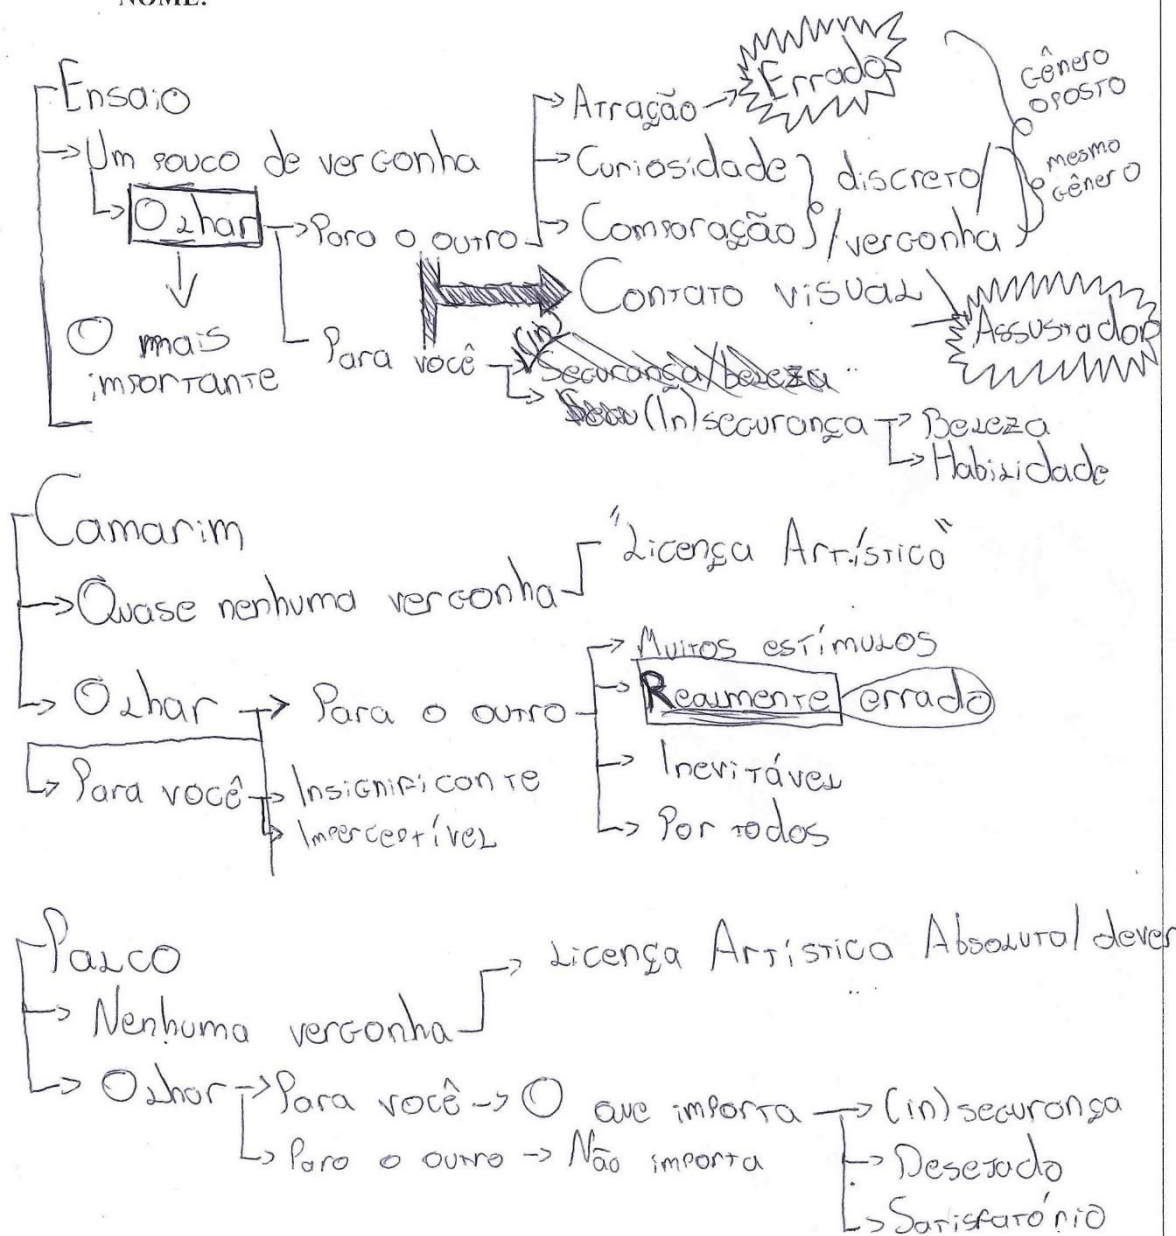 NOME:
Ensaio
→ Um pouco de vergonha
→ Olhar → Para o outro → Atração → Errado
→ Curiosidade } discreto/
→ Comparação } /vergonha
Gênero oposto
mesmo gênero
↓
O mais importante
Contato visual
Assustador
Para você → (in) Segurança/beleza
→ (In)segurança → Beleza
→ Habilidade
Camarim
→ Quase nenhuma vergonha
"Licença Artística"
→ Olhar → Para o outro → Muitos estímulos
→ Realmente errado
→ Inevitável
→ Por todos
→ Para você → Insignificante
→ Imperceptível
Palco
→ Nenhuma vergonha → Licença Artística Absoluta/dever
→ Olhar → Para você → O que importa → (in)segurança
→ Desejado
→ Satisfatório
→ Para o outro → Não importa